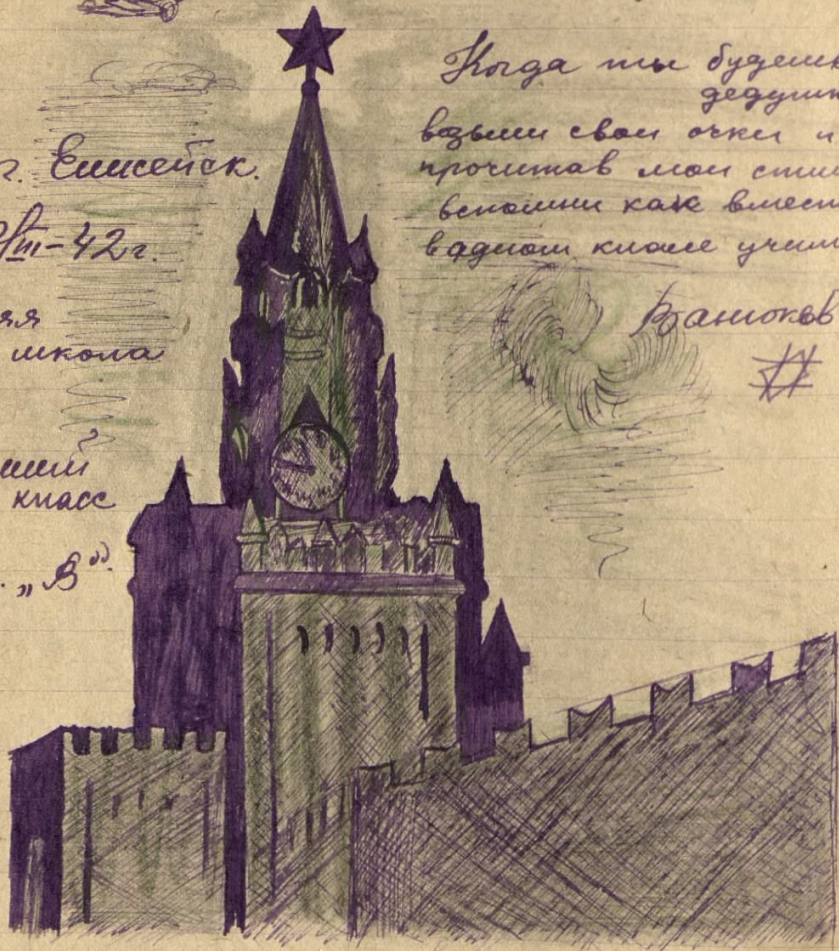 г. Енисейск.
VIII-42г.
школа
класс
„В".
Когда ты будешь
дедушк
возьми свои очки и
прочитав мои сти
вспомни как вмест
в адном класе учил
Ванюков